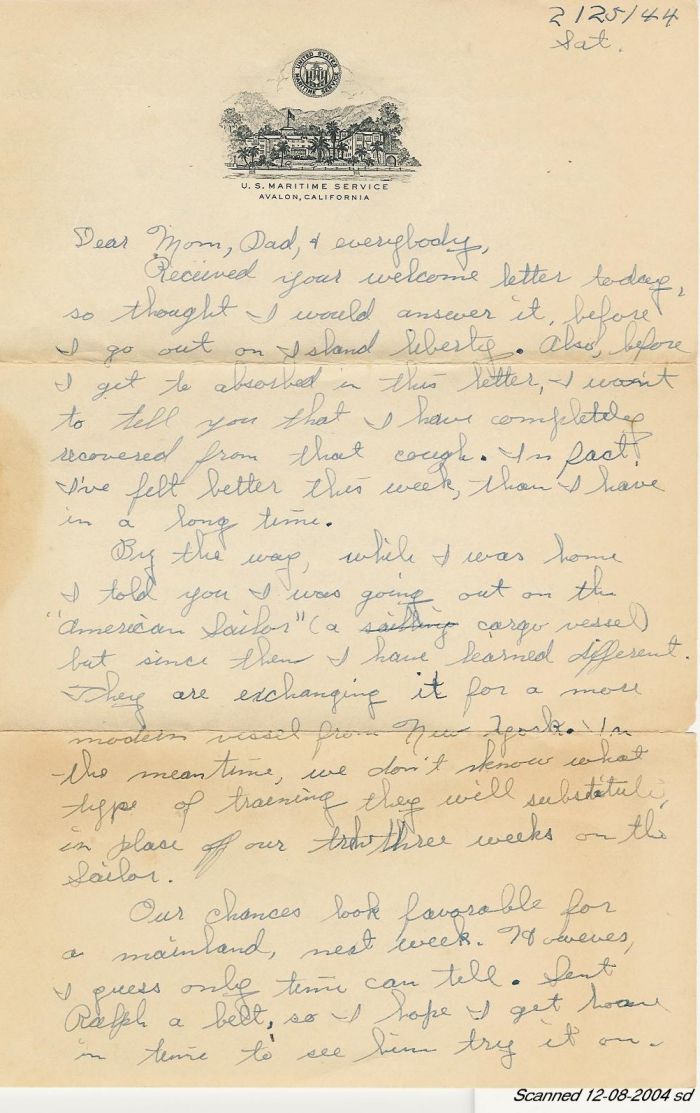 2/25/44
Sat.
UNITED STATES
MARITIME SERVICE
U. S. MARITIME SERVICE
AVALON, CALIFORNIA
Dear Mom, Dad, & everybody,
Received your welcome letter today,
so thought I would answer it, before
I go out on Island liberty. Also, before
I get to absorbed in this letter, I want
to tell you that I have completely
recovered from that cough. In fact,
I've felt better this week, than I have
in a long time.
By the way, while I was home
I told you I was going out on the
"American Sailor" (a sailing cargo vessel)
but since then I have learned different.
They are exchanging it for a more
modern vessel from New York. In
the meantime, we don't know what
type of training they will substitute,
in place of our three weeks on the
Sailor.
Our chances look favorable for
a mainland, next week. However,
I guess only time can tell. Sent
Ralph a belt, so I hope I get home
in time to see him try it on.
Scanned 12-08-2004 sd